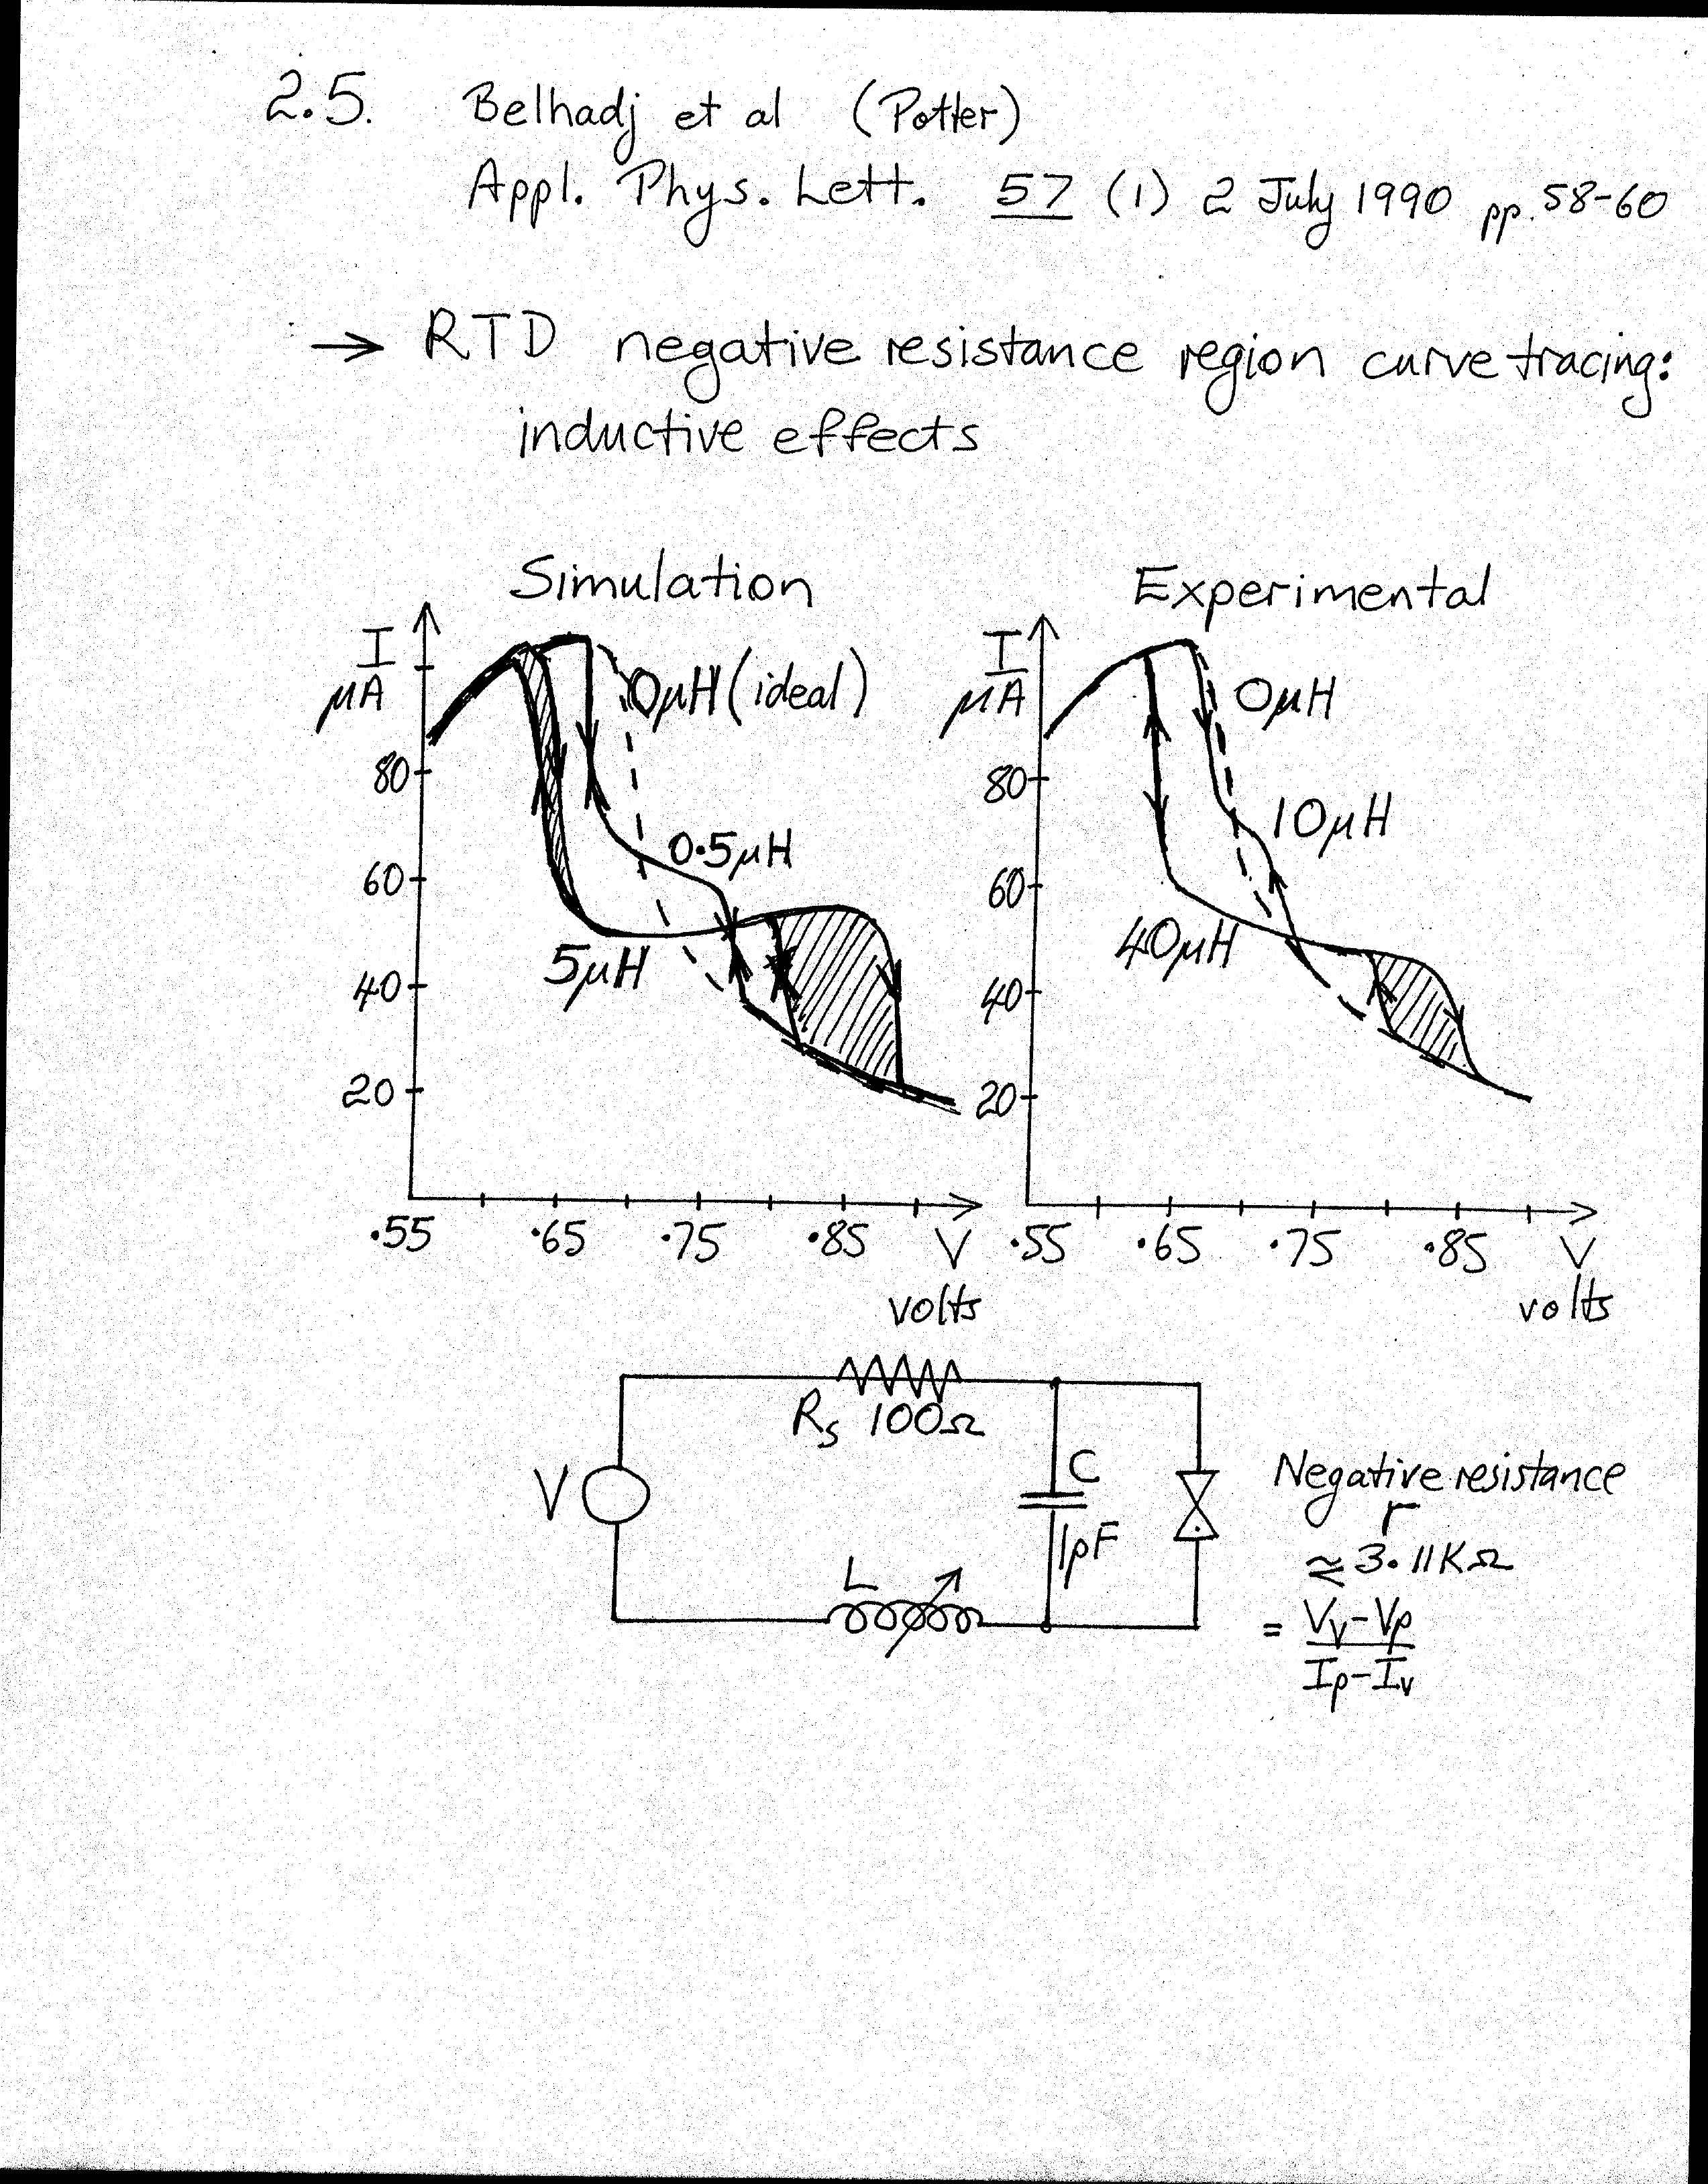 2.5. Belhadj et al (Potter)
Appl. Phys. Lett. 57 (1) 2 July 1990 pp. 58-60
→ RTD negative resistance region curve tracing:
inductive effects
Simulation
I
μA
80
60
40
20
0μH (ideal)
0.5μH
5μH
.55 .65 .75 .85 V
volts
Experimental
I
μA
80
60
40
20
0μH
10μH
40μH
.55 .65 .75 .85 V
volts
Rs 100Ω
V
C
1pF
L
Negative resistance
r
≈ 3.11KΩ
= Vv-Vp
Ip-Iv